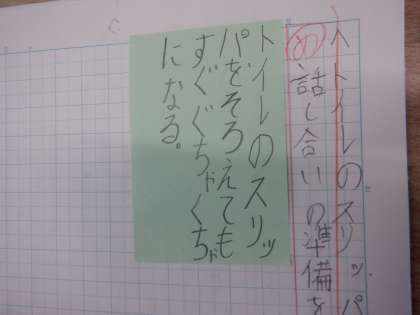 トイレのスリッパ
め 話し合いの準備を
トイレのスリッ
パをそろえても
すぐぐちゃぐちゃ
になる。